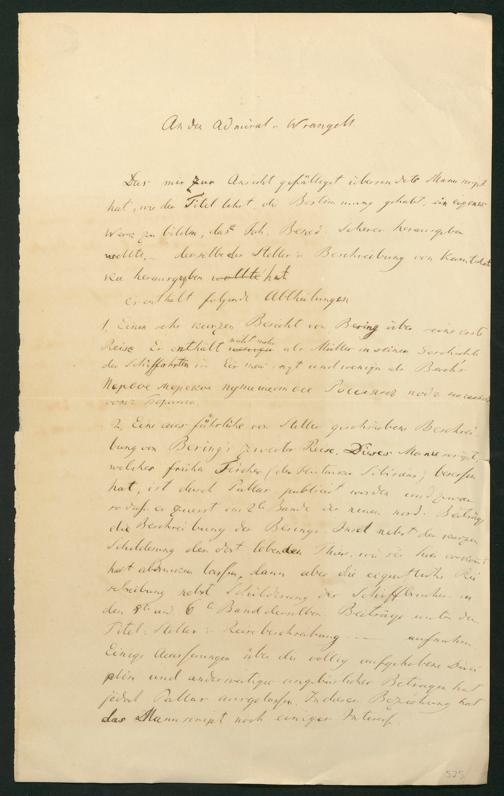 An den Admiral v. Wrangell
Das mir zur Ansicht gefälligst übersendete Manuscript
hat, wie der Titel lehrt, die Bestimmung gehabt, ein eigenes
Werk zu bilden, das Joh. Bened. Scherer herausgeben
wollte, – derselbe der Steller's Beschreibung von Kamtschat
ka herausgegeben wollte hat
Es enthält folgende Abtheilungen
1, Einen sehr kurzen Bericht von Bering über seine erste
Reise. Er enthält nicht mehr als Müller in seiner Geschichte
der Schifffahrten im Eismeer sagt und weniger als Berchs
Первое морское путешествие Россиянъ
2, Eine ausführliche von Steller geschriebene Beschrei
bung von Bering's zweiter Reise. Dieses Manuscript
welches früher Fischer (der Historiker Sibiriens) besessen
hat, ist durch Pallas publicirt worden und zwar
so dass er zuerst im 2t Bande der neuen nord. Beiträge
die Beschreibung der Berings-Insel nebst der kurzen
Schilderung der dort lebenden Thiere, wie sie hier
hat abdrucken lassen, dann aber die eigentliche Rei
sebeschreibung nebst Schilderung der Schiffbruches in
den 5ten und 6t Band derselben Beiträge unter dem
Titel: Steller's Reisebeschreibung --- aufnahm.
Einige Aeusserungen über die völlig aufgehobene Disci
plin und anderweitige ungebührliche Betragen hat
jedoch Pallas ausgelassen. In dieser Beziehung hat
das Manuscript noch einiges Interesse.
525